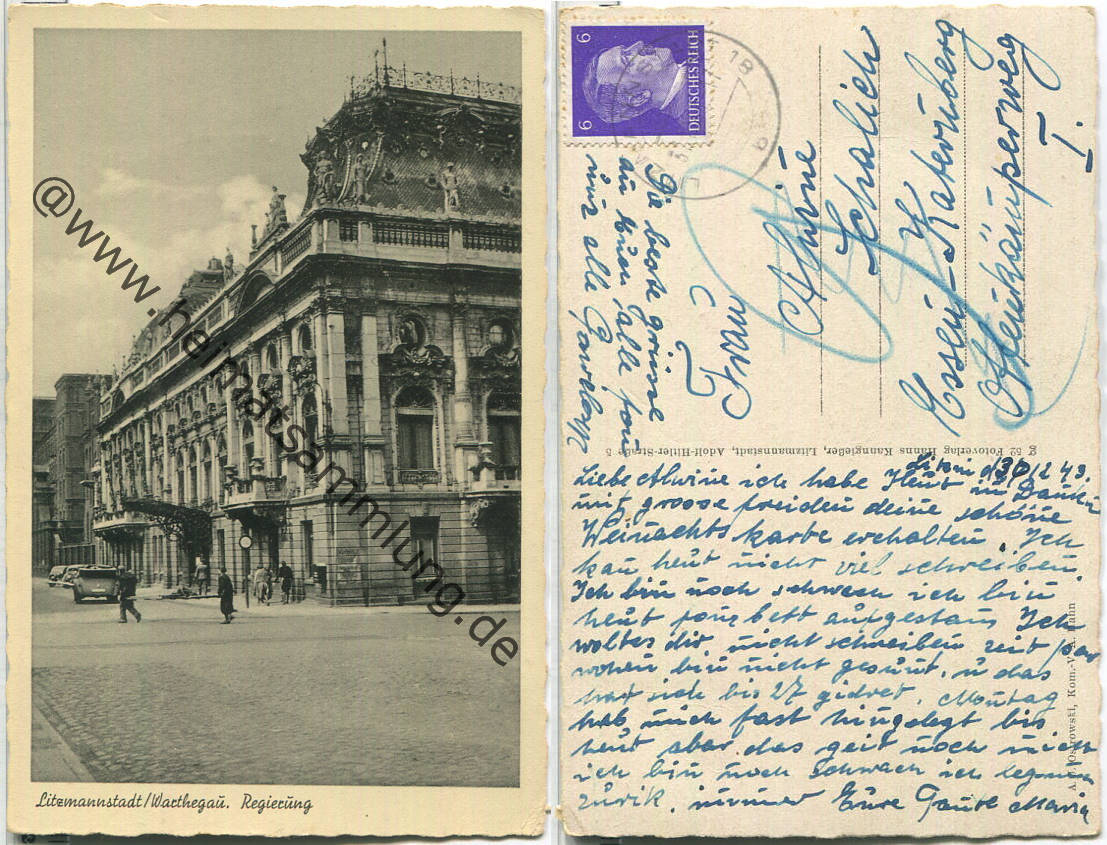 Litzmannstadt/Warthegau. Regierung
@www.heimatsammlung.de
DEUTSCHES REICH
6
6
Die beste grüsse
an euch alle fon
uns alle
Frau
Alwine
Schalich
Essen-Katernberg
Meerkämperweg
I.
g 52 Fotoverlag Hanns Kangießer, Litzmannstadt, Adolf-Hitler-Straße 5
Kom.-V. A. Hahn
30/12 43.
Liebe Alwine ich habe Heut in Danken
mit grosse freiden deine schöne
Weinachts karte erhalten. Ich
kan heut nicht viel schreiben.
Ich bin noch schwach ich bin
heut fon bett aufgestans Ich
woltes dir nicht schreiben seit par
wohen bin nicht gesunt, u das
hat sich bis 27 Montag
hab mich fast hingelegt bis
heut aber das geit noch nich
ich bin noch schwach ich
zurik. immer Eure Tante Maria